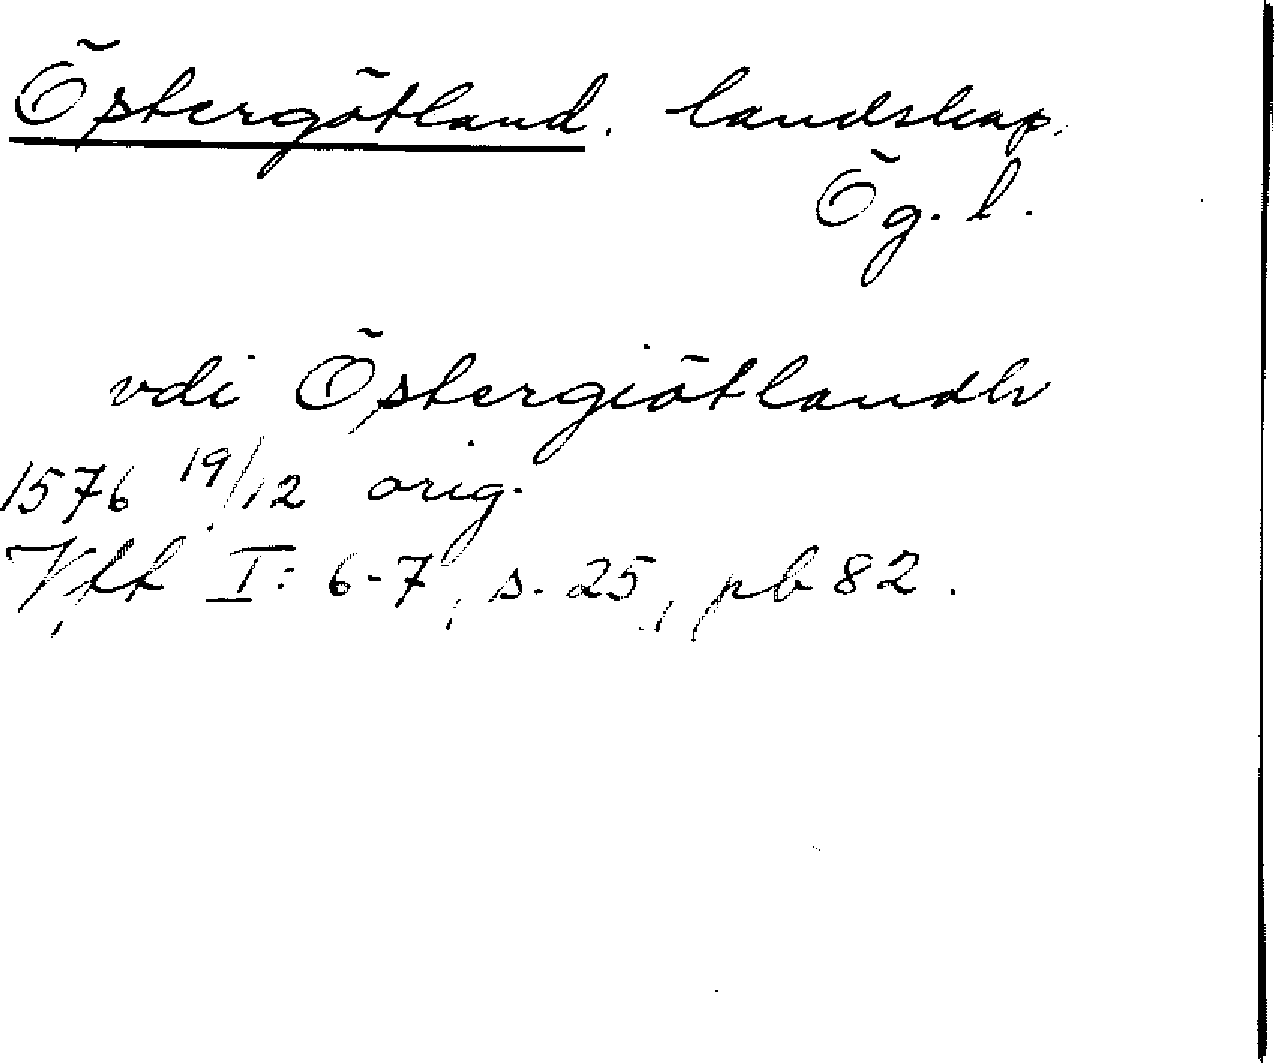 Östergötland. landskap.
Ög. l.
vdi Östergiötlandh
1576 19/12 orig.
Vfh I: 6-7, s. 25, pb 82.